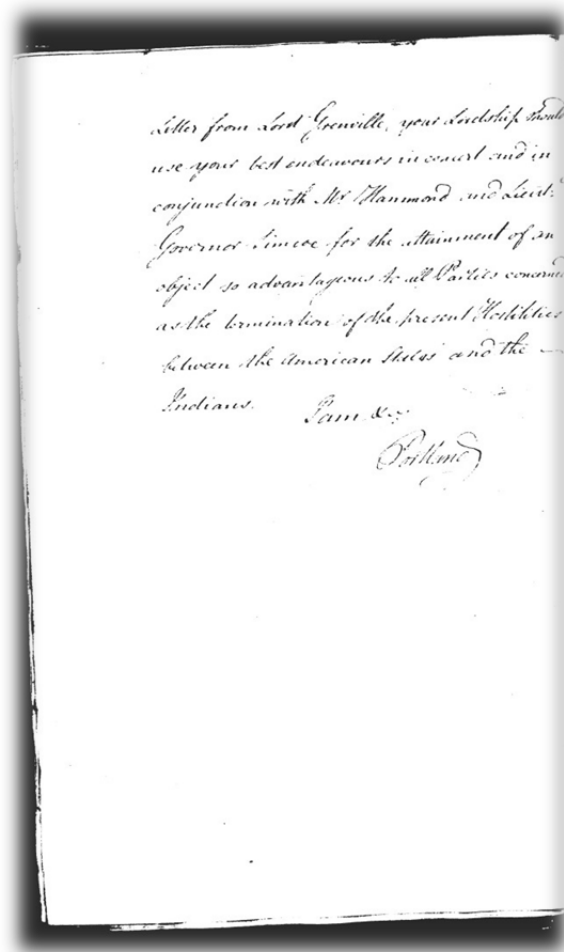 Letter from Lord Grenville, your Lordship should
use your best endeavours in concert and in
conjunction with Mr. Hammond and Lieut:
Governor Simcoe for the attainment of an
object so advantageous to all Parties concerned
as the termination of the present Hostilities
between the American States and the —
Indians. I am &c
Portland